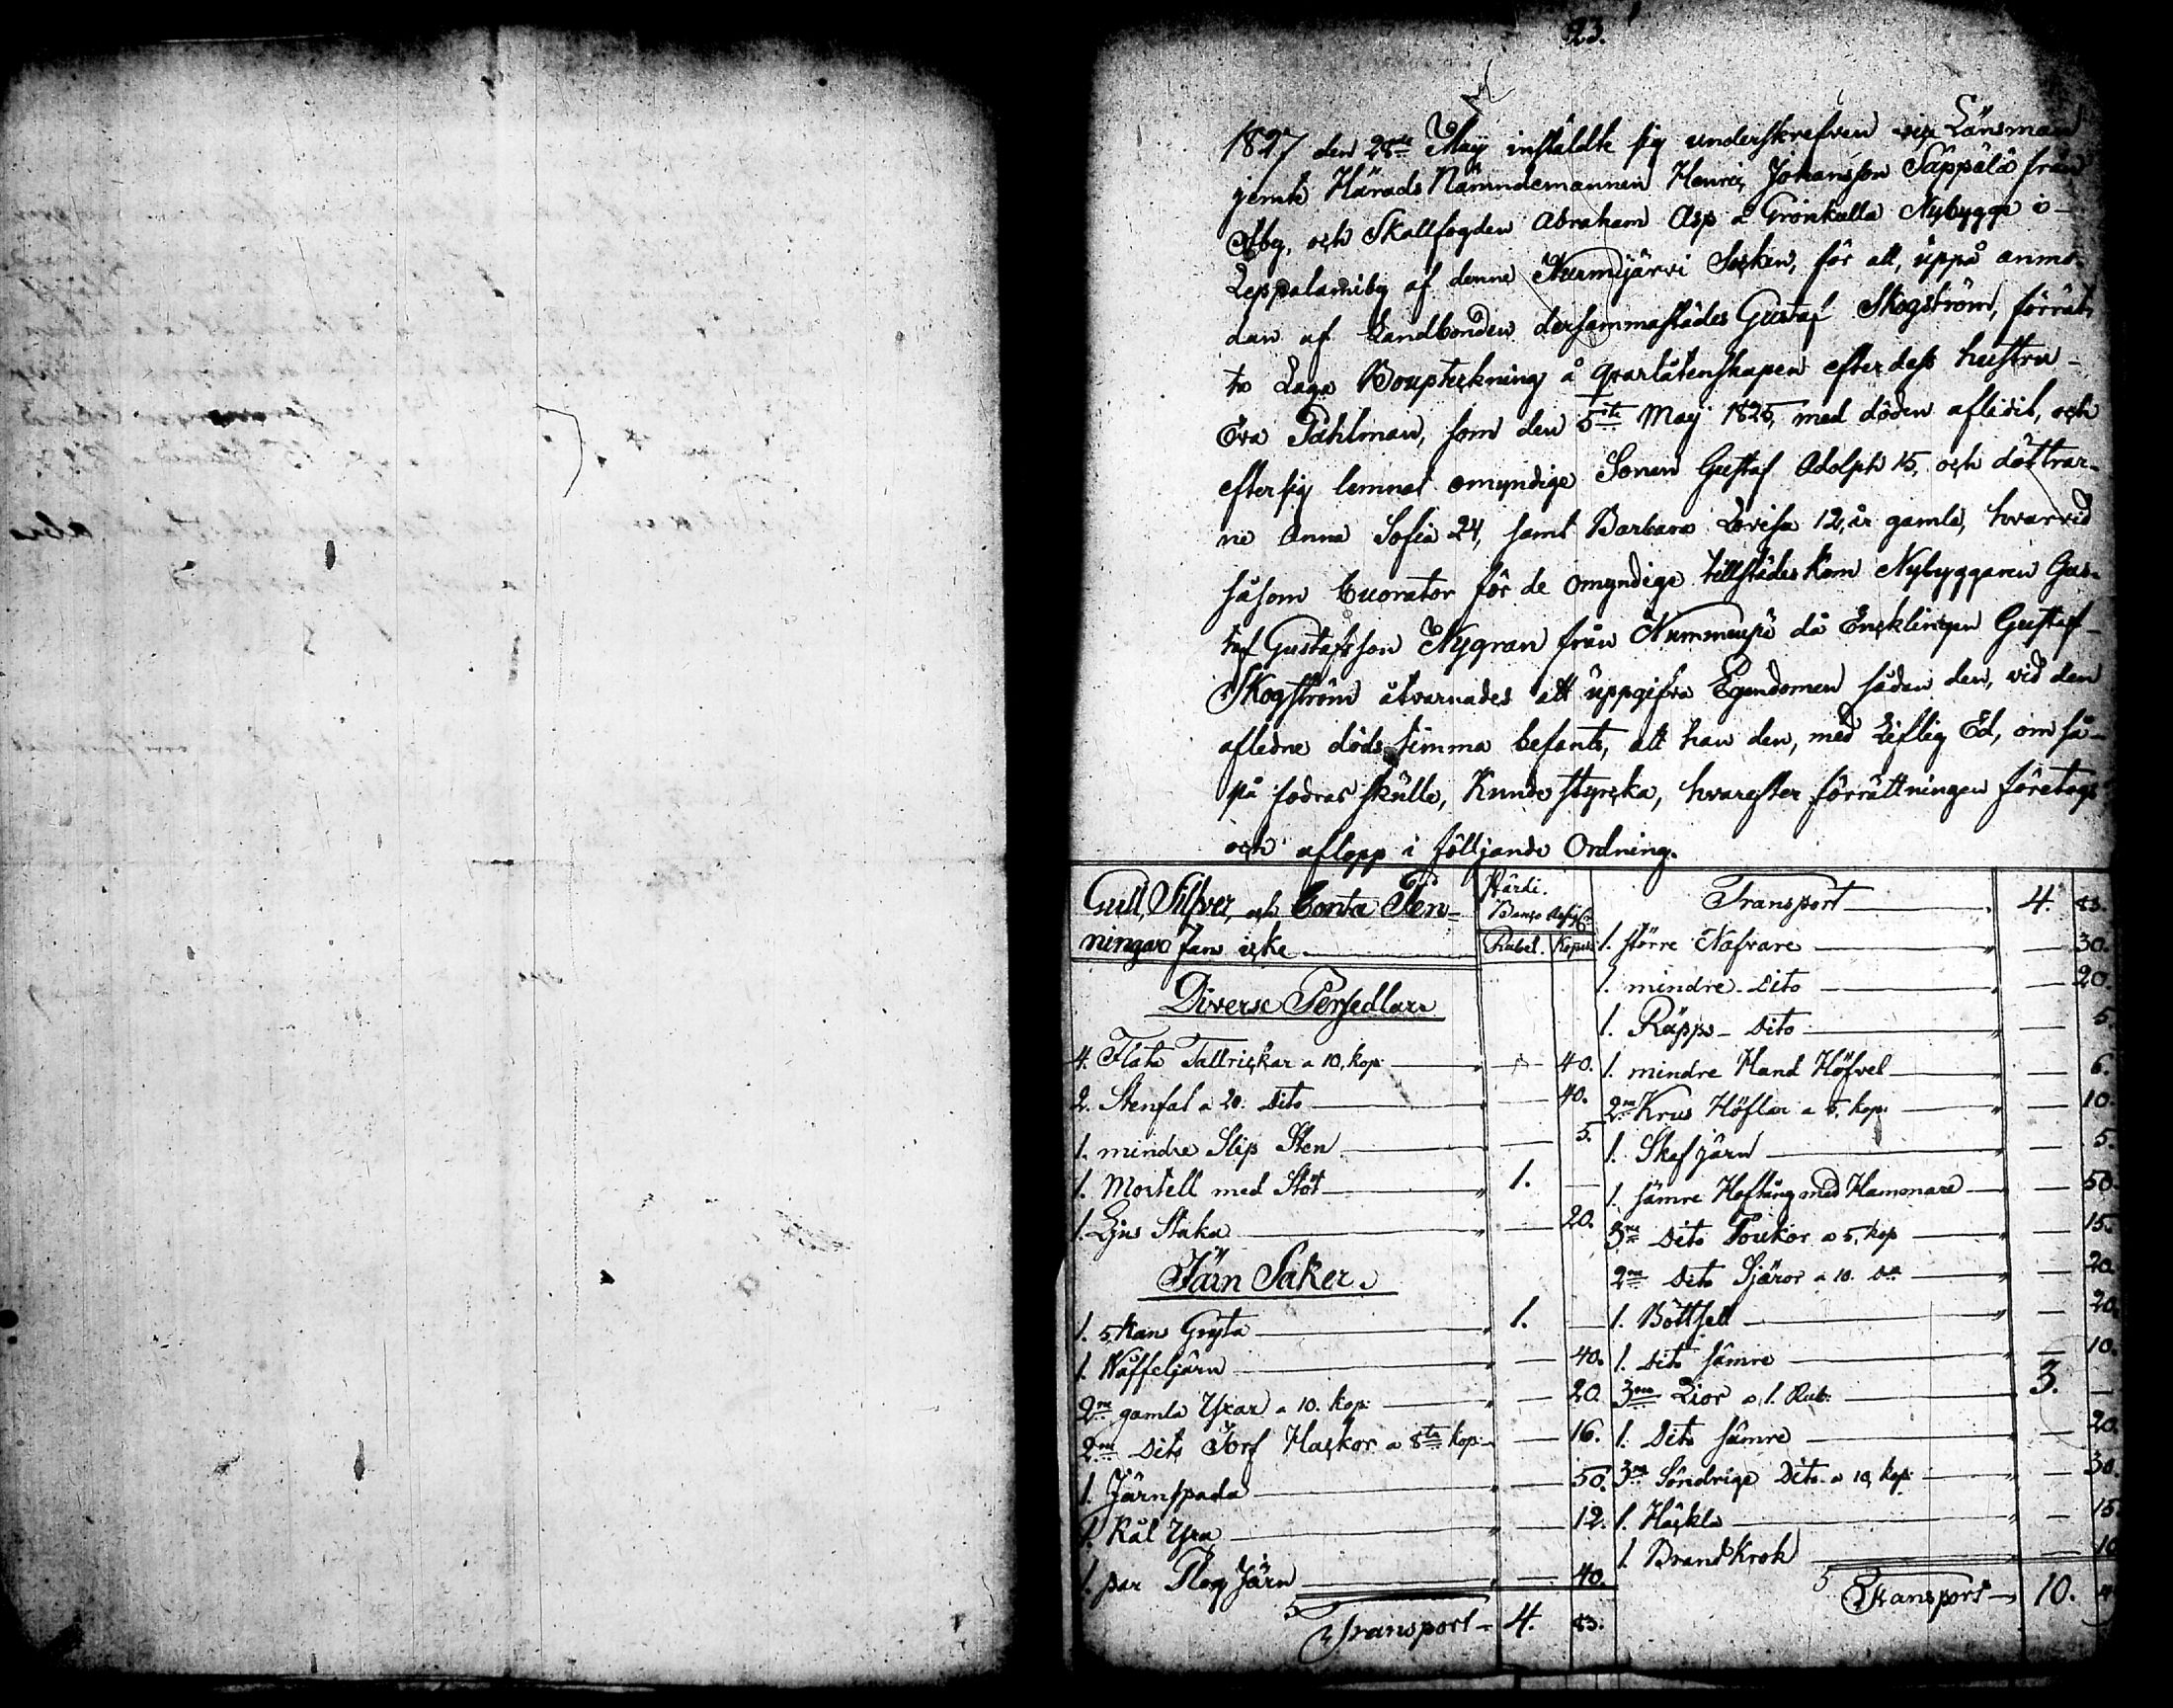 23.
1827 den 28de Maÿ inställdte sig underskrefven vice Länsman
jemte Härads Nämndemannen Henric Johansson Säppälä från
by, och Skallfogden Abraham Asp å Grönkulla Nybygge i
Leppälamiby af denne Nurmijärvi Socken, för att, uppå anmo-
dan af Landbonden dersammastädes Gustaf Skogström, förrät-
ta Laga Boupteckning å qvarlåtenskapen efter dess hustru
Eva Påhlman, som den 5te Maji 1825, med döden aflidit, och
efter sig lemnat omyndige Sonen Gustaf Adolph 15, och döttrar-
ne Anna Sofia 24, samt Barbara Lovisa 12, år gamla, hvarvid
såsom Cuorator för de omyndige tillstädes kom Nybyggaren Gus-
taf Gustafsson Nygran från då Encklingen Gustaf
Skogström åtvarnades att uppgifva Egendomen sådan den, vid den
aflidne döds timma befants, att han den, med Liflig Ed, om så
på fodras skulle, Kunde styrcka, hvarefter förrättningen företogs
och aflopp i följjande Ordning.
Gull, Silfver, och Conta Pen-
ningar fans icke
Värdi.
Banco Assign
Rubel. Kopek
Diverse Persedlar
4. Flata Tallrickar a 10, kop: — 40.
2. Stenfat a 20. Dito — 40.
1. mindre Slip Sten — 5.
1. Mortell med Stöt 1. —
1. Ljus Staka — 20.
Järn Saker.
1. 5. Kans Gryta 1. —
1. Waffeljärn — 40.
2ne gamla Yxar a 10. kop: — 20.
2ne Dito Torf Hackor a 8ta kop: — 16.
1. Järnspada — 50.
1. Kål Yxa — 12.
1. par Plog Järn — 40.
Transport 4. 83.
Transport 4. 83.
1. större Nafvare — 30.
1. mindre Dito — 20.
1. Räpps Dito — 5.
1. mindre Hand Höfvel — 6.
2ne Krus Höflar a 5. kop: — 10.
1. Skafjärn — 5.
1. sämre Hoftång med Hammare — 50.
3ne Dito Tourkor a 5, kop — 15.
2ne Dito Sjäror a 10. Do — 20.
1. Böttsell — 20.
1. Dito sämre — 10.
3ne Lior a 1. Rub: 3. —
1. Dito sämre — 20.
3ne Söndrige Dito a 10, kop: — 30.
1. Häckla — 15.
1. Brand Krok — 10
Transport 10.